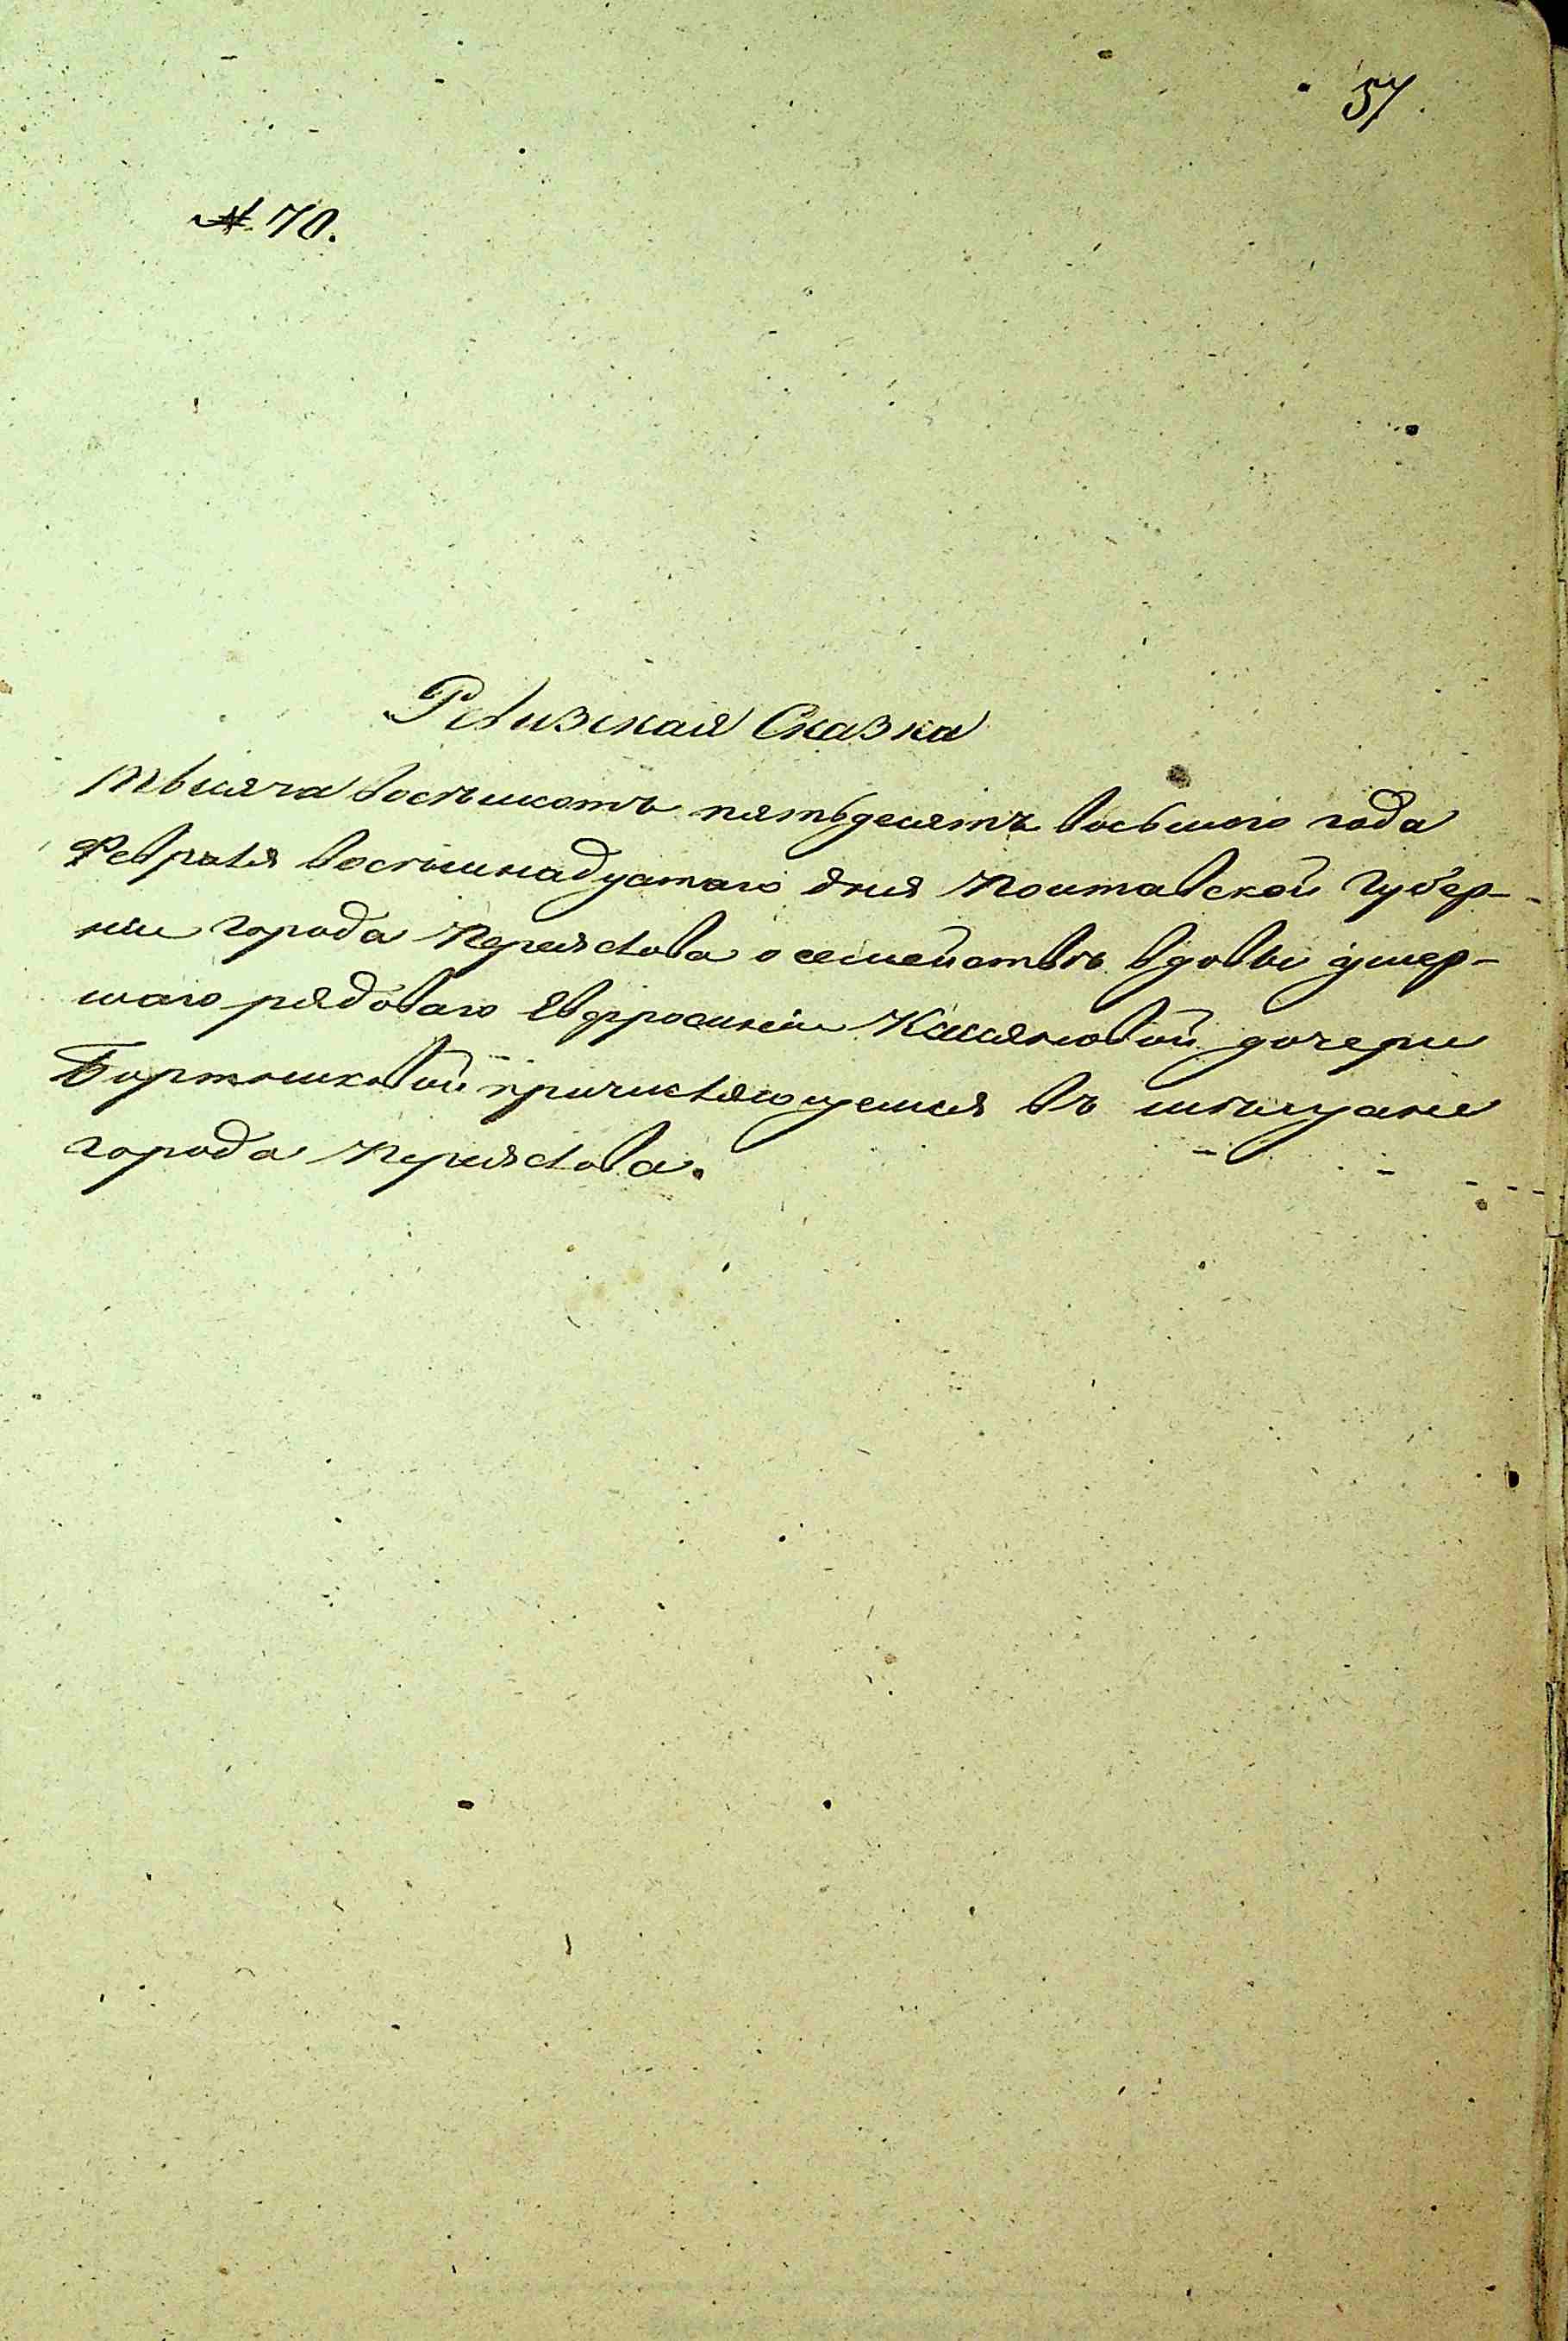 57
№ 70.
Ревизская Сказка
Тысяча восемьсотъ пятьдесятъ восьмого года
Февраля восемьнадцатаго дня Полтавской Губер-
ніи города Переяслова о семействѣ вдовы умер-
шаго рядоваго Евфросиніи Касяновой дочери
причисляющемся въ мѣщане
города Переяслова.